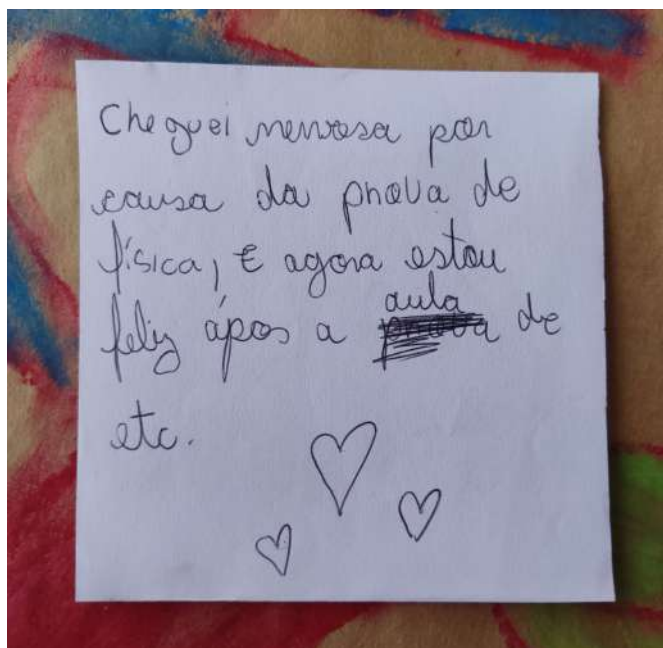 Cheguei nervosa por
causa da prova de
física, E agora estou
feliz ápos a aula de
etc.